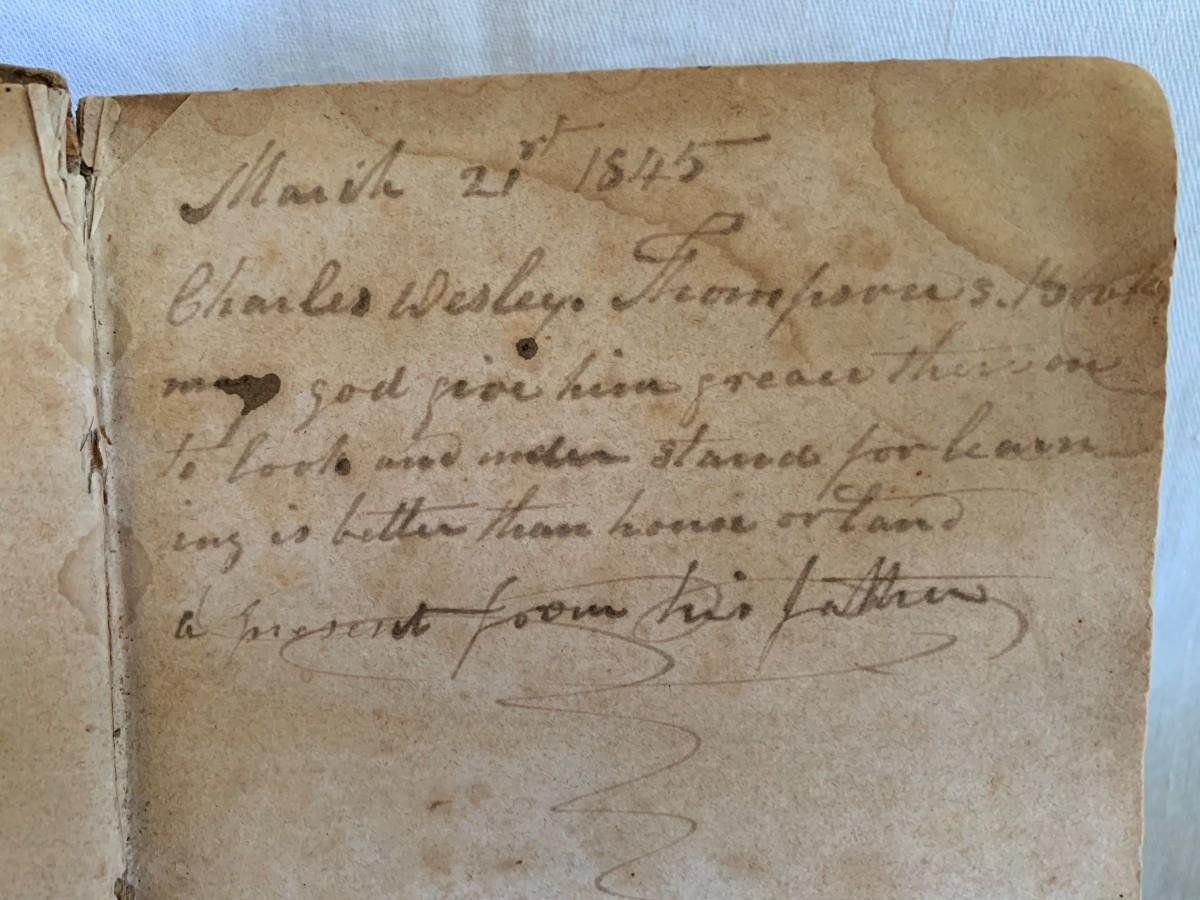 March 21st 1845
Charles Wesley. Thompson s. Book
may god give him greace there on
to look and under stand for learn
ing is better than house or land
a present from his father